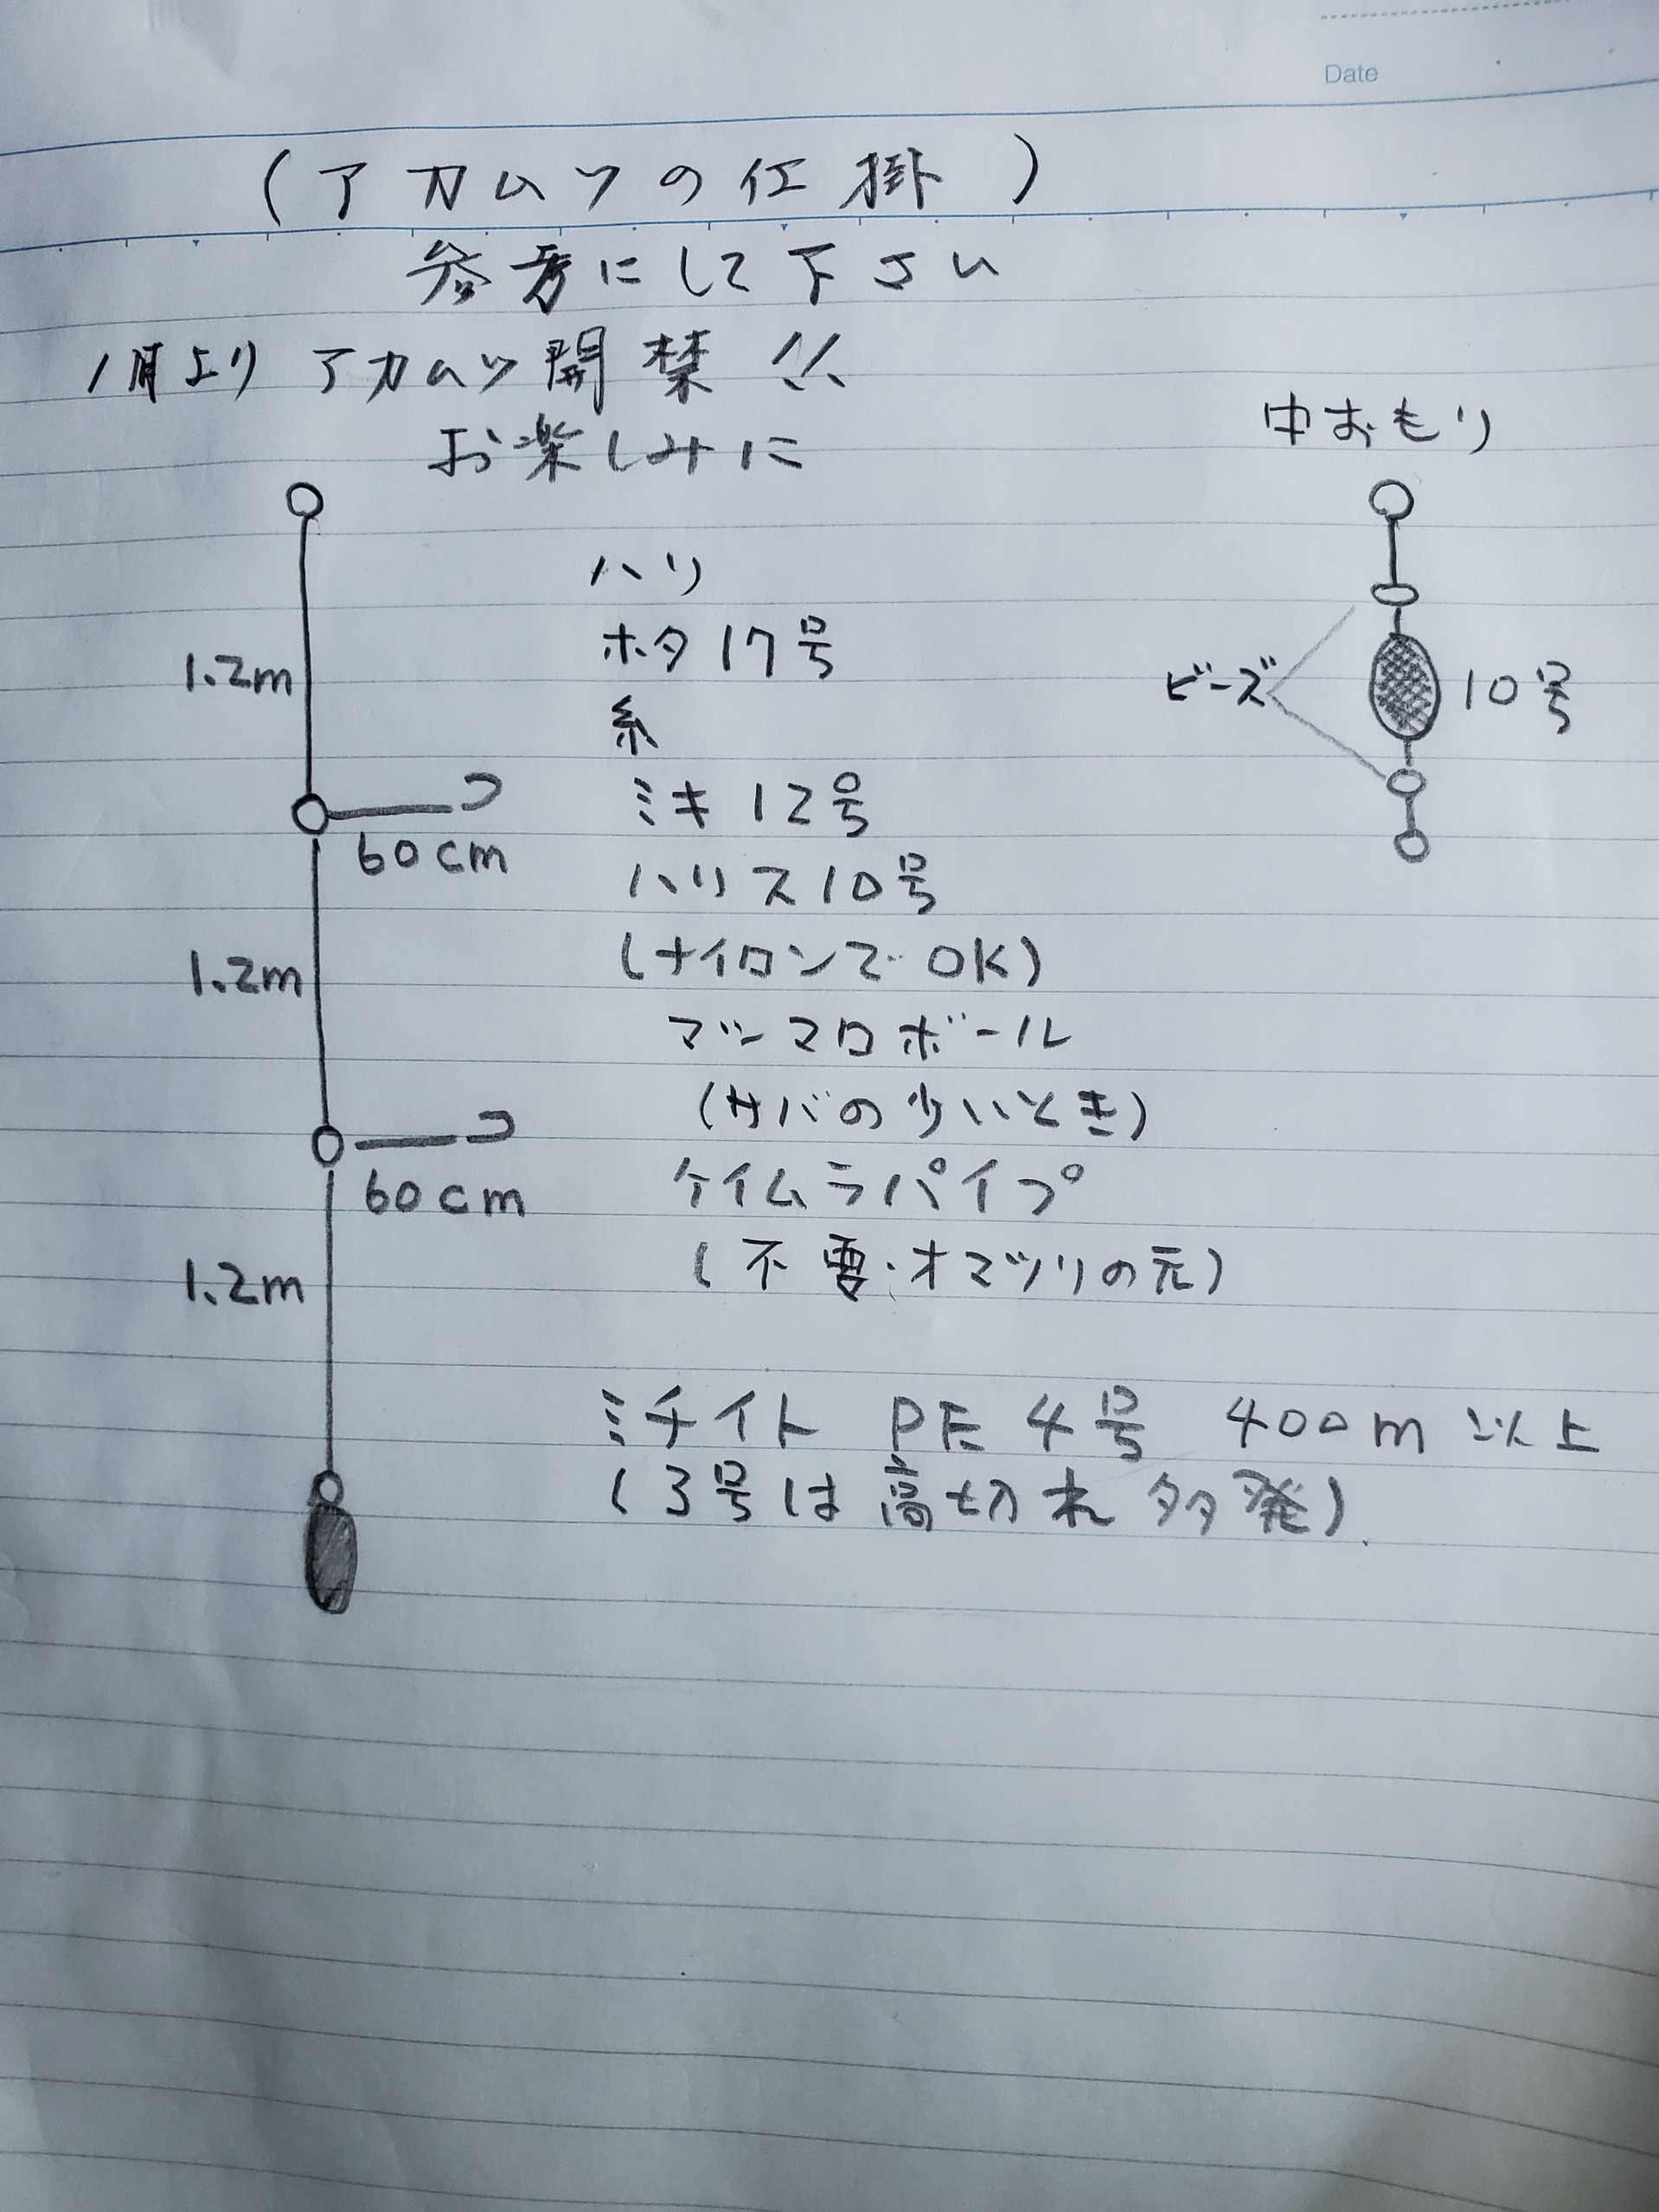 Date
(アカムツの仕掛)
参考にして下さい
1月よりアカムツ開禁!!
お楽しみに
中おもり
ハリ
ホタ17号
糸
ミキ12号
ハリス10号
(ナイロンでOK)
マシマロボール
(サバの少いとき)
ケイムラパイプ
(不要・オマツリの元)
ミチイト PE 4号 400m 以上
(3号は高切れ多発)
1.2m
60cm
1.2m
60cm
1.2m
ビーズ
10号